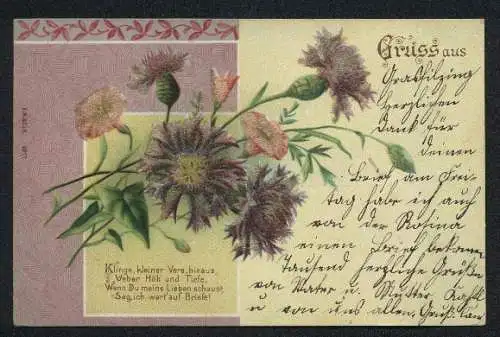 Gruss aus
Grasfilzing
herzlichen
Dank für
deinen
Brief am Frei-
tag habe ich auch
von der Rosina
einen Brief bekomm
Tausend herzliche Grüße
von Vater u. Mutter,
u von uns allen. Gruß
Klinge, kleiner Vers, hinaus,
Ueber Höh und Tiefe,
Wenn Du meine Lieben schaust,
Sag, ich wart' auf Briefe!